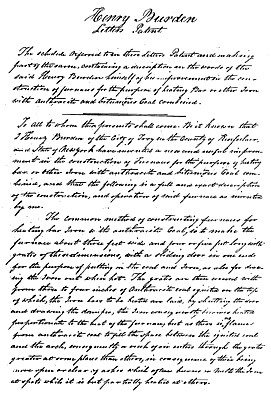 Henry Burden
Letters Patent
The schedule referred to in these Letters Patent and making
part of the same, containing a description in the words of the
said Henry Burden himself of his improvement in the con-
struction of furnaces for the purpose of heating Bar or other Iron
with Anthracite and bituminous Coal combined.
To all to whom these presents shall come: Be it known that
I Henry Burden of the City of Troy in the county of Rensselaer,
and State of New york have invented a new and useful improve-
ment in the construction of Furnaces for the purpose of heating
bar or other Iron with anthracite and bituminous Coal com-
bined, and that the following is a full and exact description
of the construction, and operation of said furnace as invented
by me.
The common method of constructing furnaces for
heating bar Iron with anthracite Coal, is to make the
furnace about three feet wide and four or five feet long with
grates of these dimensions, with a sliding door in one end
for the purpose of putting in the coal and Iron, as also for draw-
ing the Iron out when hot. The grates are then covered with
from three to four inches of Anthracite coal ignited on the top
of which, the Iron bars to be heated are laid, by shutting the door
and drawing the damper, the Iron consequently becomes heated
proportionate to the heat of the furnace, but as there is flame
from anthracite coal to fill the space between the ignited coal
and the arch, consequently a rush of air enters through the grate
greater at some places than others, in consequence of their being
more open or clear of ashes which often burns or melts the Iron
at spots while it is but partially heated at others.